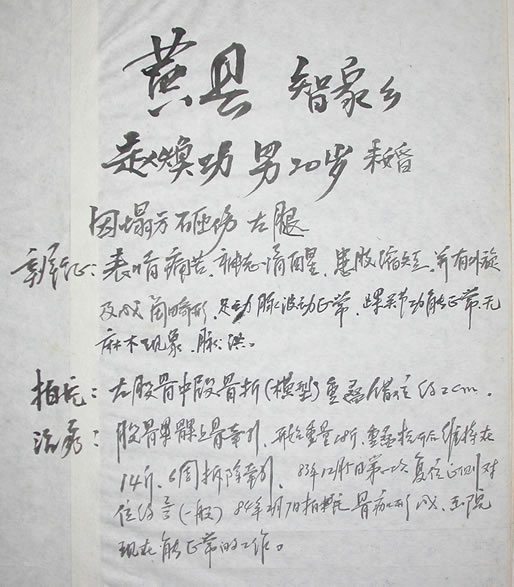 黄县 智家乡
赵焕功 男20岁 未婚
因塌方砸伤左腿
表情痛苦、神志清醒、患肢缩短、并有外旋
及成角畸形 足动脉波动正常 踝关节功能正常无
麻木现象、脉洪。
拍片：左股骨中段骨折（横型）重叠错位约2cm.
治疗：股骨髁上骨牵引 开始重量28斤、重叠拉开后维持在
14斤、6周拆除牵引、83年12月 日第一次复位正侧对
位 （一般）84年2月7日拍片 骨痂形成、出院
现在能正常的工作。